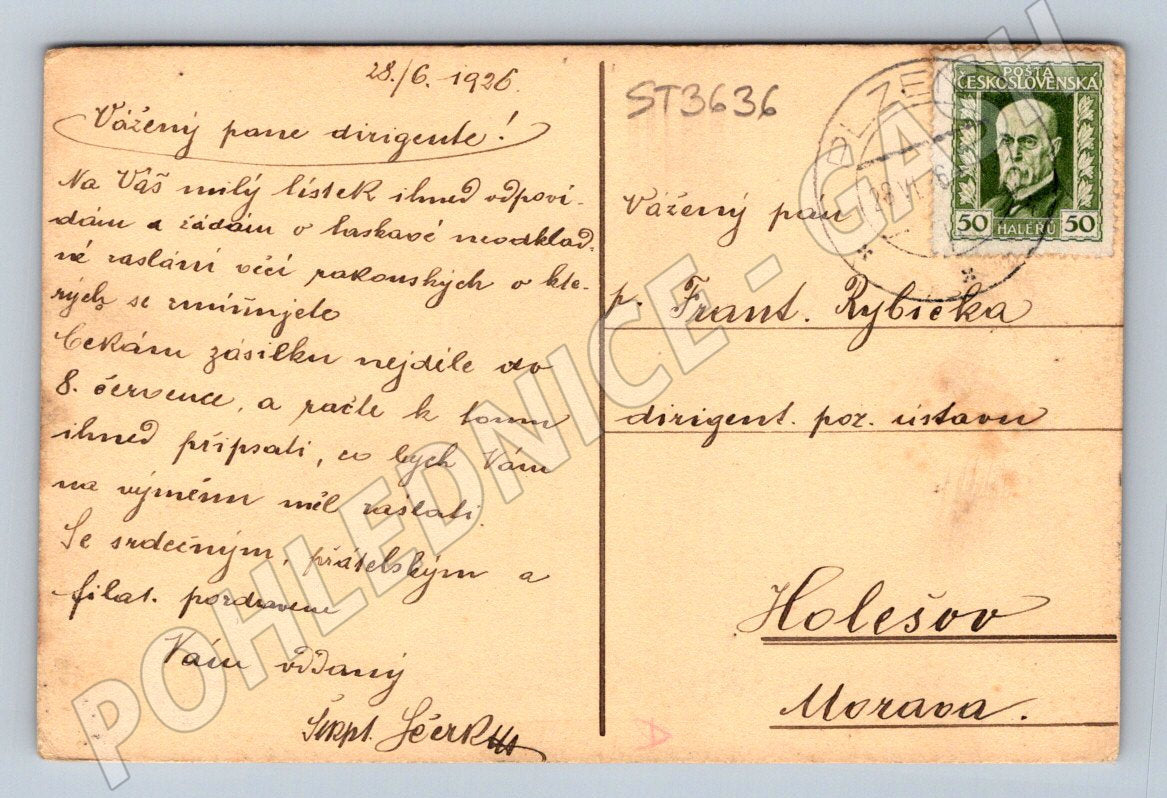 28./6. 1926.
Vážený pane dirigente!
Na Váš milý lístek ihned odpoví-
dám a žádám o laskavé neodklad-
né zaslání věcí rakouských o kte-
rých se zmiňujete
Čekám zásilku nejdéle do
8. července, a račte k tomu
ihned připsati, co bych Vám
na výměnu měl zaslati.
Se srdečným, přátelským a
filat. pozdravem
Vám oddaný
Škpt.
ST3636
PLZEŇ
28 VI 26
POŠTA
ČESKOSLOVENSKÁ
50 HALÉŘŮ 50
Vážený pán
p. Frant. Rybička
dirigent. poz. ústavu
Holešov
Morava.
A
POHLEDNICE - GASH